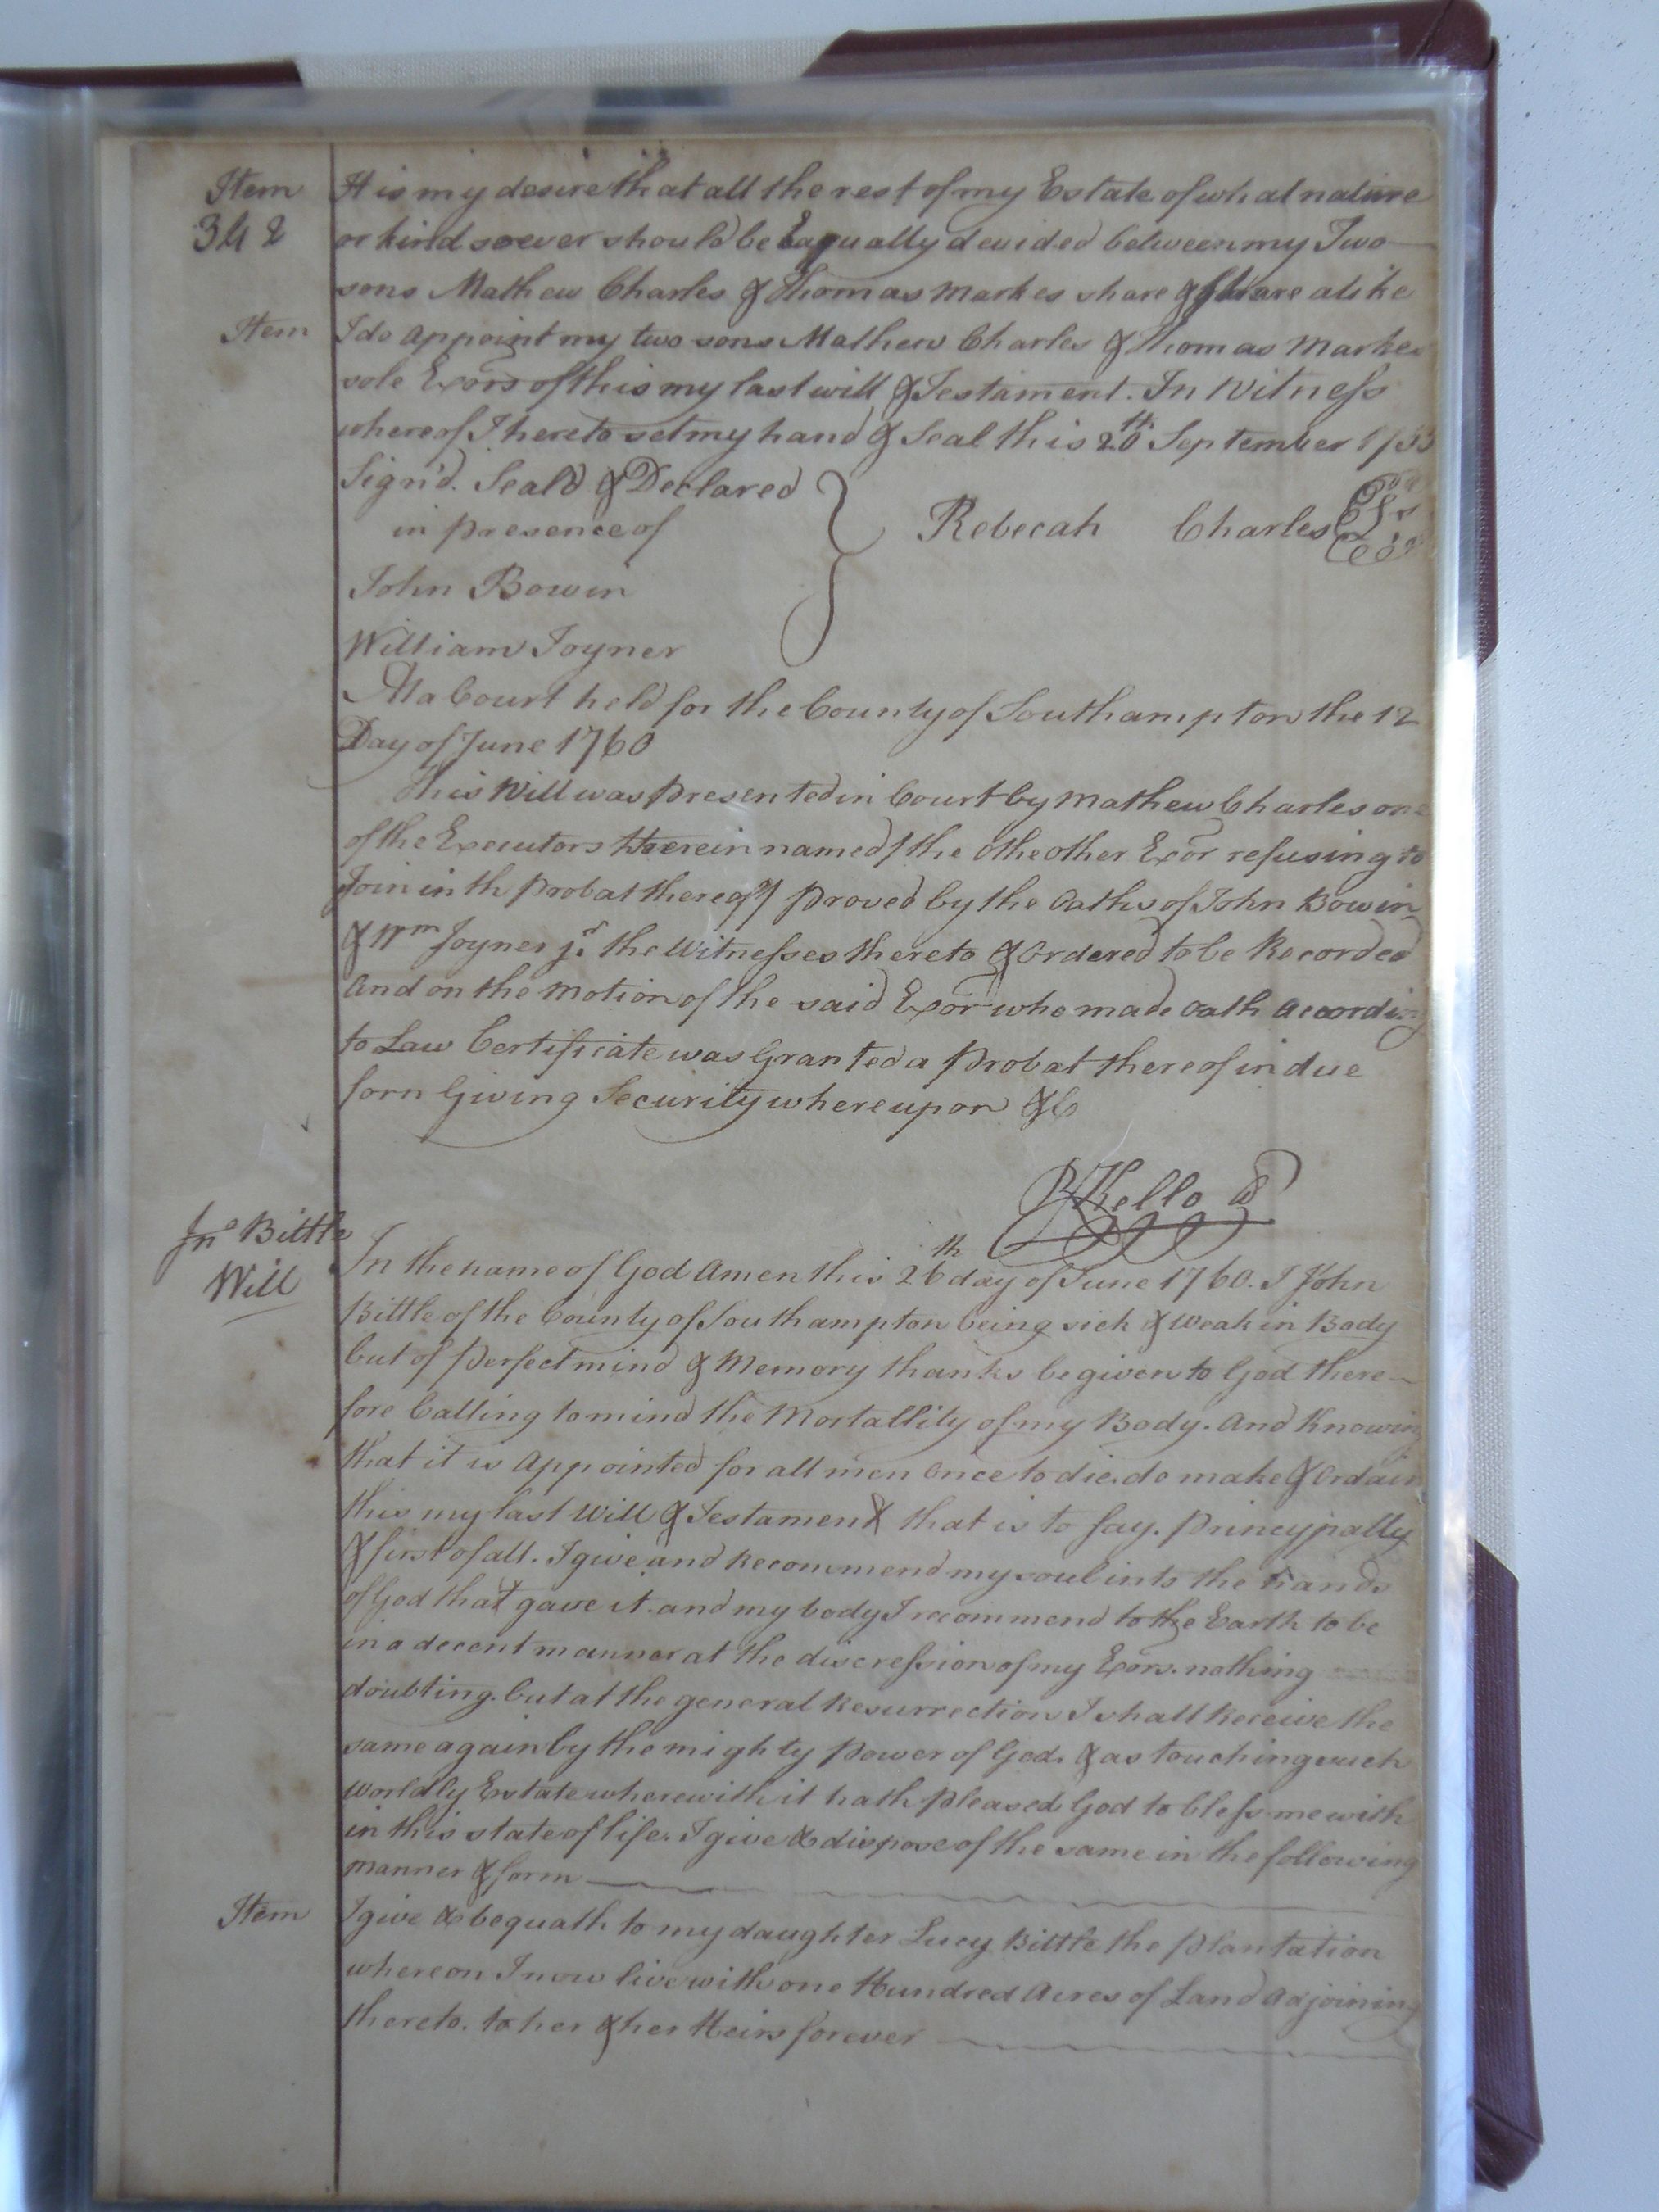 Item It is my desire that all the rest of my Estate of what nature
342 or kind soever should be Eaqually devided between my Two
sons Mathew Charles & Thomas Markes share & share alike
Item I do appoint my two sons Mathew Charles & Thomas Markes
sole Exors of this my last will & Testament. In Witness
whereof I hereto set my hand & Seal this 20th September
Sign'd. Seald & Declared
in presence of
Rebecah Charles
John Bowin
William Joyner
At a Court held for the County of Southampton the 12
Day of June 1760
This Will was presented in Court by Mathew Charles one
of the Executors therein named / the otheother Exor refusing to
Join in th probat thereof / proved by the Oaths of John Bowin
& Wm Joyner jr. the Witnesses thereto & Ordered to be Recorded
And on the Motion of the said Exor who made Oath According
to Law Certificate was Granted a probat thereof in due
form Giving Security whereupon &c
RKello
Jno Bittle
Will
In the name of God Amen this 26th day of June 1760. I John
Bittle of the County of Southampton being sick & weak in Body
but of perfect mind & Memory thanks be given to God there-
fore Calling to mind the Mortallity of my Body. And Knowing
that it is Appointed for all men Once to die. do make & Ordain
this my last Will & Testament that is to say. principally
& first of all. I give and Recommend my soul into the hands
of God that gave it. and my body I recommend to the Earth to be
in a decent manner at the discression of my Exors. nothing
doubting. but at the general Resurrection I shall Receive the
same again by the mighty power of God. & as touching such
Worldly Estate wherewith it hath pleased God to bless me with
in this state of life. I give & dispose of the same in the following
manner & form
Item I give & bequath to my daughter Lucy Bittle the plantation
whereon I now live with one Hundred Acres of Land Adjoining
thereto. to her & her Heirs forever